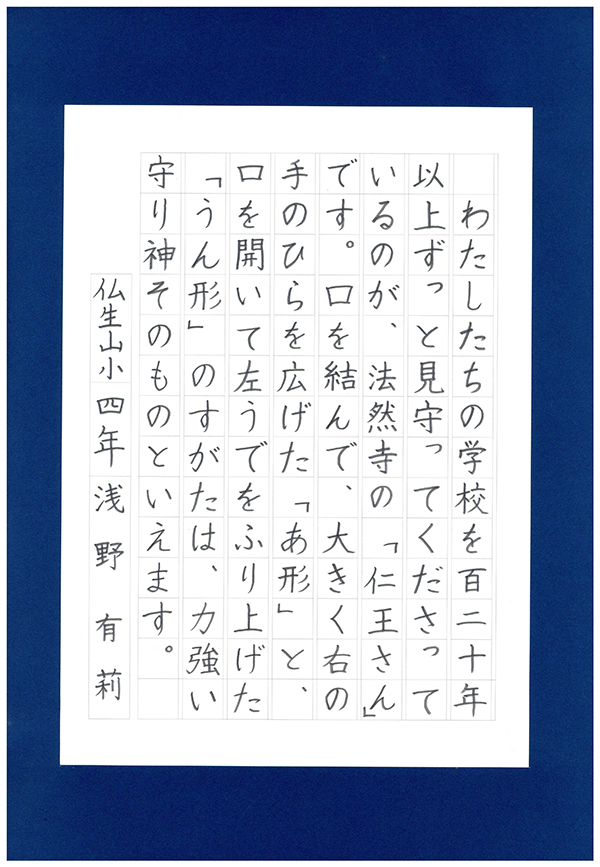 わたしたちの学校を百二十年
以上ずっと見守ってくださって
いるのが、法然寺の「仁王さん」
です。口を結んで、大きく右の
手のひらを広げた「あ形」と、
口を開いて左うでをふり上げた
「うん形」のすがたは、力強い
守り神そのものといえます。
仏生山小四年浅野有莉